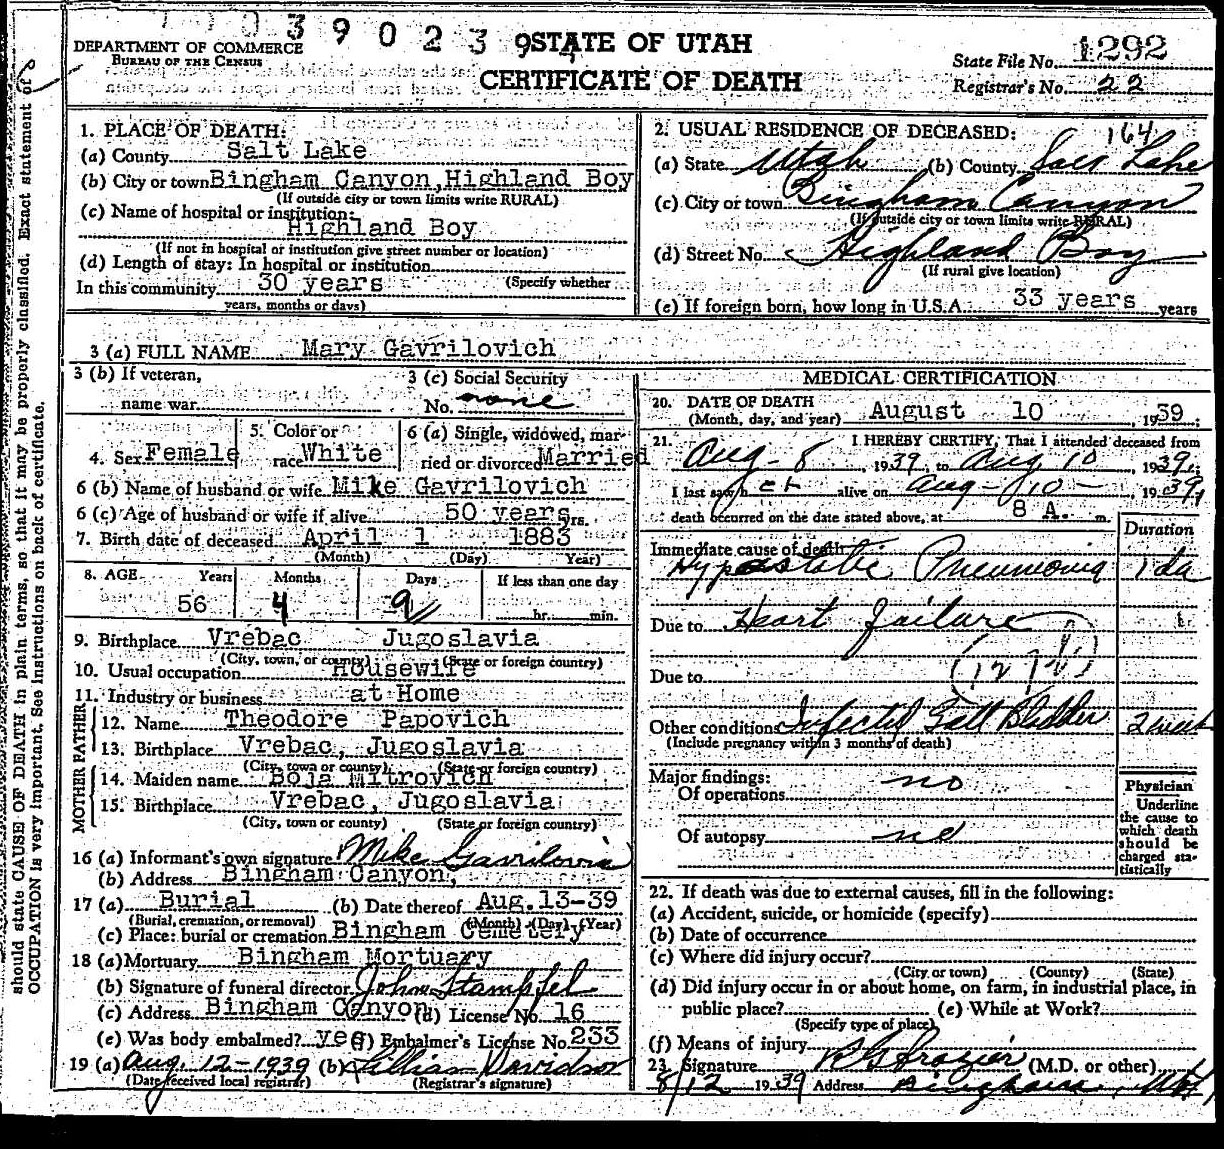 3 9 0 2 3 9
DEPARTMENT OF COMMERCE
BUREAU OF THE CENSUS
STATE OF UTAH
CERTIFICATE OF DEATH
State File No. 1292
Registrar's No. 22
should state CAUSE OF DEATH in plain terms, so that it may be properly classified. Exact statement of
OCCUPATION is very important. See instructions on back of certificate.
1. PLACE OF DEATH:
(a) County Salt Lake
(b) City or town Bingham Canyon, Highland Boy
(If outside city or town limits write RURAL)
(c) Name of hospital or institution:
Highland Boy
(If not in hospital or institution give street number or location)
(d) Length of stay: In hospital or institution
In this community 30 years (Specify whether
years, months or days)
2. USUAL RESIDENCE OF DECEASED: 164
(a) State Utah (b) County Salt Lake
(c) City or town Bingham Canyon
(If outside city or town limits write RURAL)
(d) Street No. Highland Boy
(If rural give location)
(e) If foreign born, how long in U.S.A. 33 years years
3 (a) FULL NAME Mary Gavrilovich
3 (b) If veteran,
name war
3 (c) Social Security
No. none
4. Sex Female
5. Color or
race White
6 (a) Single, widowed, mar-
ried or divorced Married
6 (b) Name of husband or wife Mike Gavrilovich
6 (c) Age of husband or wife if alive 50 years yrs.
7. Birth date of deceased April 1 1883
(Month) (Day) Year)
8. AGE Years Months Days If less than one day
56 4 9 hr. min.
9. Birthplace Vrebac Jugoslavia
(City, town, or county) (State or foreign country)
10. Usual occupation Housewife
11. Industry or business at Home
FATHER
12. Name Theodore Papovich
13. Birthplace Vrebac, Jugoslavia
(City, town or county) (State or foreign country)
MOTHER
14. Maiden name Boja Mitrovich
15. Birthplace Vrebac, Jugoslavia
(City, town or county) (State or foreign country)
16 (a) Informant's own signature Mike Gavrilovich
(b) Address Bingham Canyon,
17 (a) Burial (b) Date thereof Aug. 13-39
(Burial, cremation, or removal) (Month) (Day) (Year)
(c) Place: burial or cremation Bingham Cemetery
18 (a) Mortuary Bingham Mortuary
(b) Signature of funeral director John Stampfel
(c) Address Bingham Canyon (d) License No. 16
(e) Was body embalmed? yes (f) Embalmer's License No. 233
19 (a) Aug. 12-1939 (b) Lillian Davidson
(Date received local registrar) (Registrar's signature)
MEDICAL CERTIFICATION
20. DATE OF DEATH
(Month, day, and year) August 10, 1939:
21. I HEREBY CERTIFY, That I attended deceased from
Aug - 8, 1939, to Aug 10, 1939.
I last saw her alive on Aug - 10 -, 1939,
death occurred on the date stated above, at 8 A. m.
Duration
Immediate cause of death
Hypostatic Pneumonia 1 da
Due to Heart Failure 1
Due to
Other conditions Infected Gall Bladder 2 week
(Include pregnancy within 3 months of death)
Major findings:
Of operations no
Of autopsy no
Physician
Underline
the cause to
which death
should be
charged sta-
tistically
22. If death was due to external causes, fill in the following:
(a) Accident, suicide, or homicide (specify)
(b) Date of occurrence
(c) Where did injury occur?
(City or town) (County) (State)
(d) Did injury occur in or about home, on farm, in industrial place, in
public place? (e) While at Work?
(Specify type of place)
(f) Means of injury
23. Signature Frazier (M.D. or other)
8/12 1939 Address Bingham, Utah